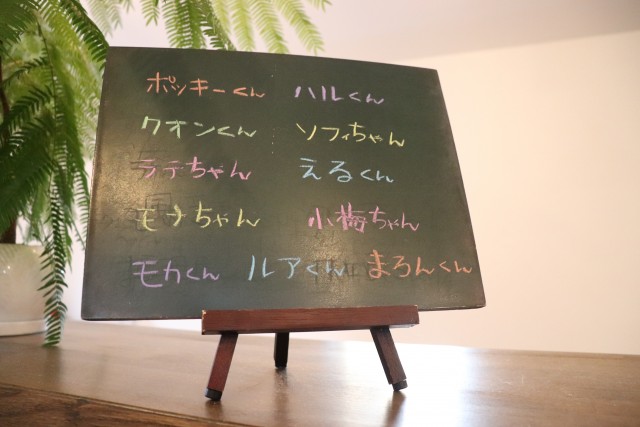 ポッキーくん ハルくん
クオンくん ソフィちゃん
ラテちゃん えるくん
モナちゃん 小梅ちゃん
モカくん ルアくん まろんくん